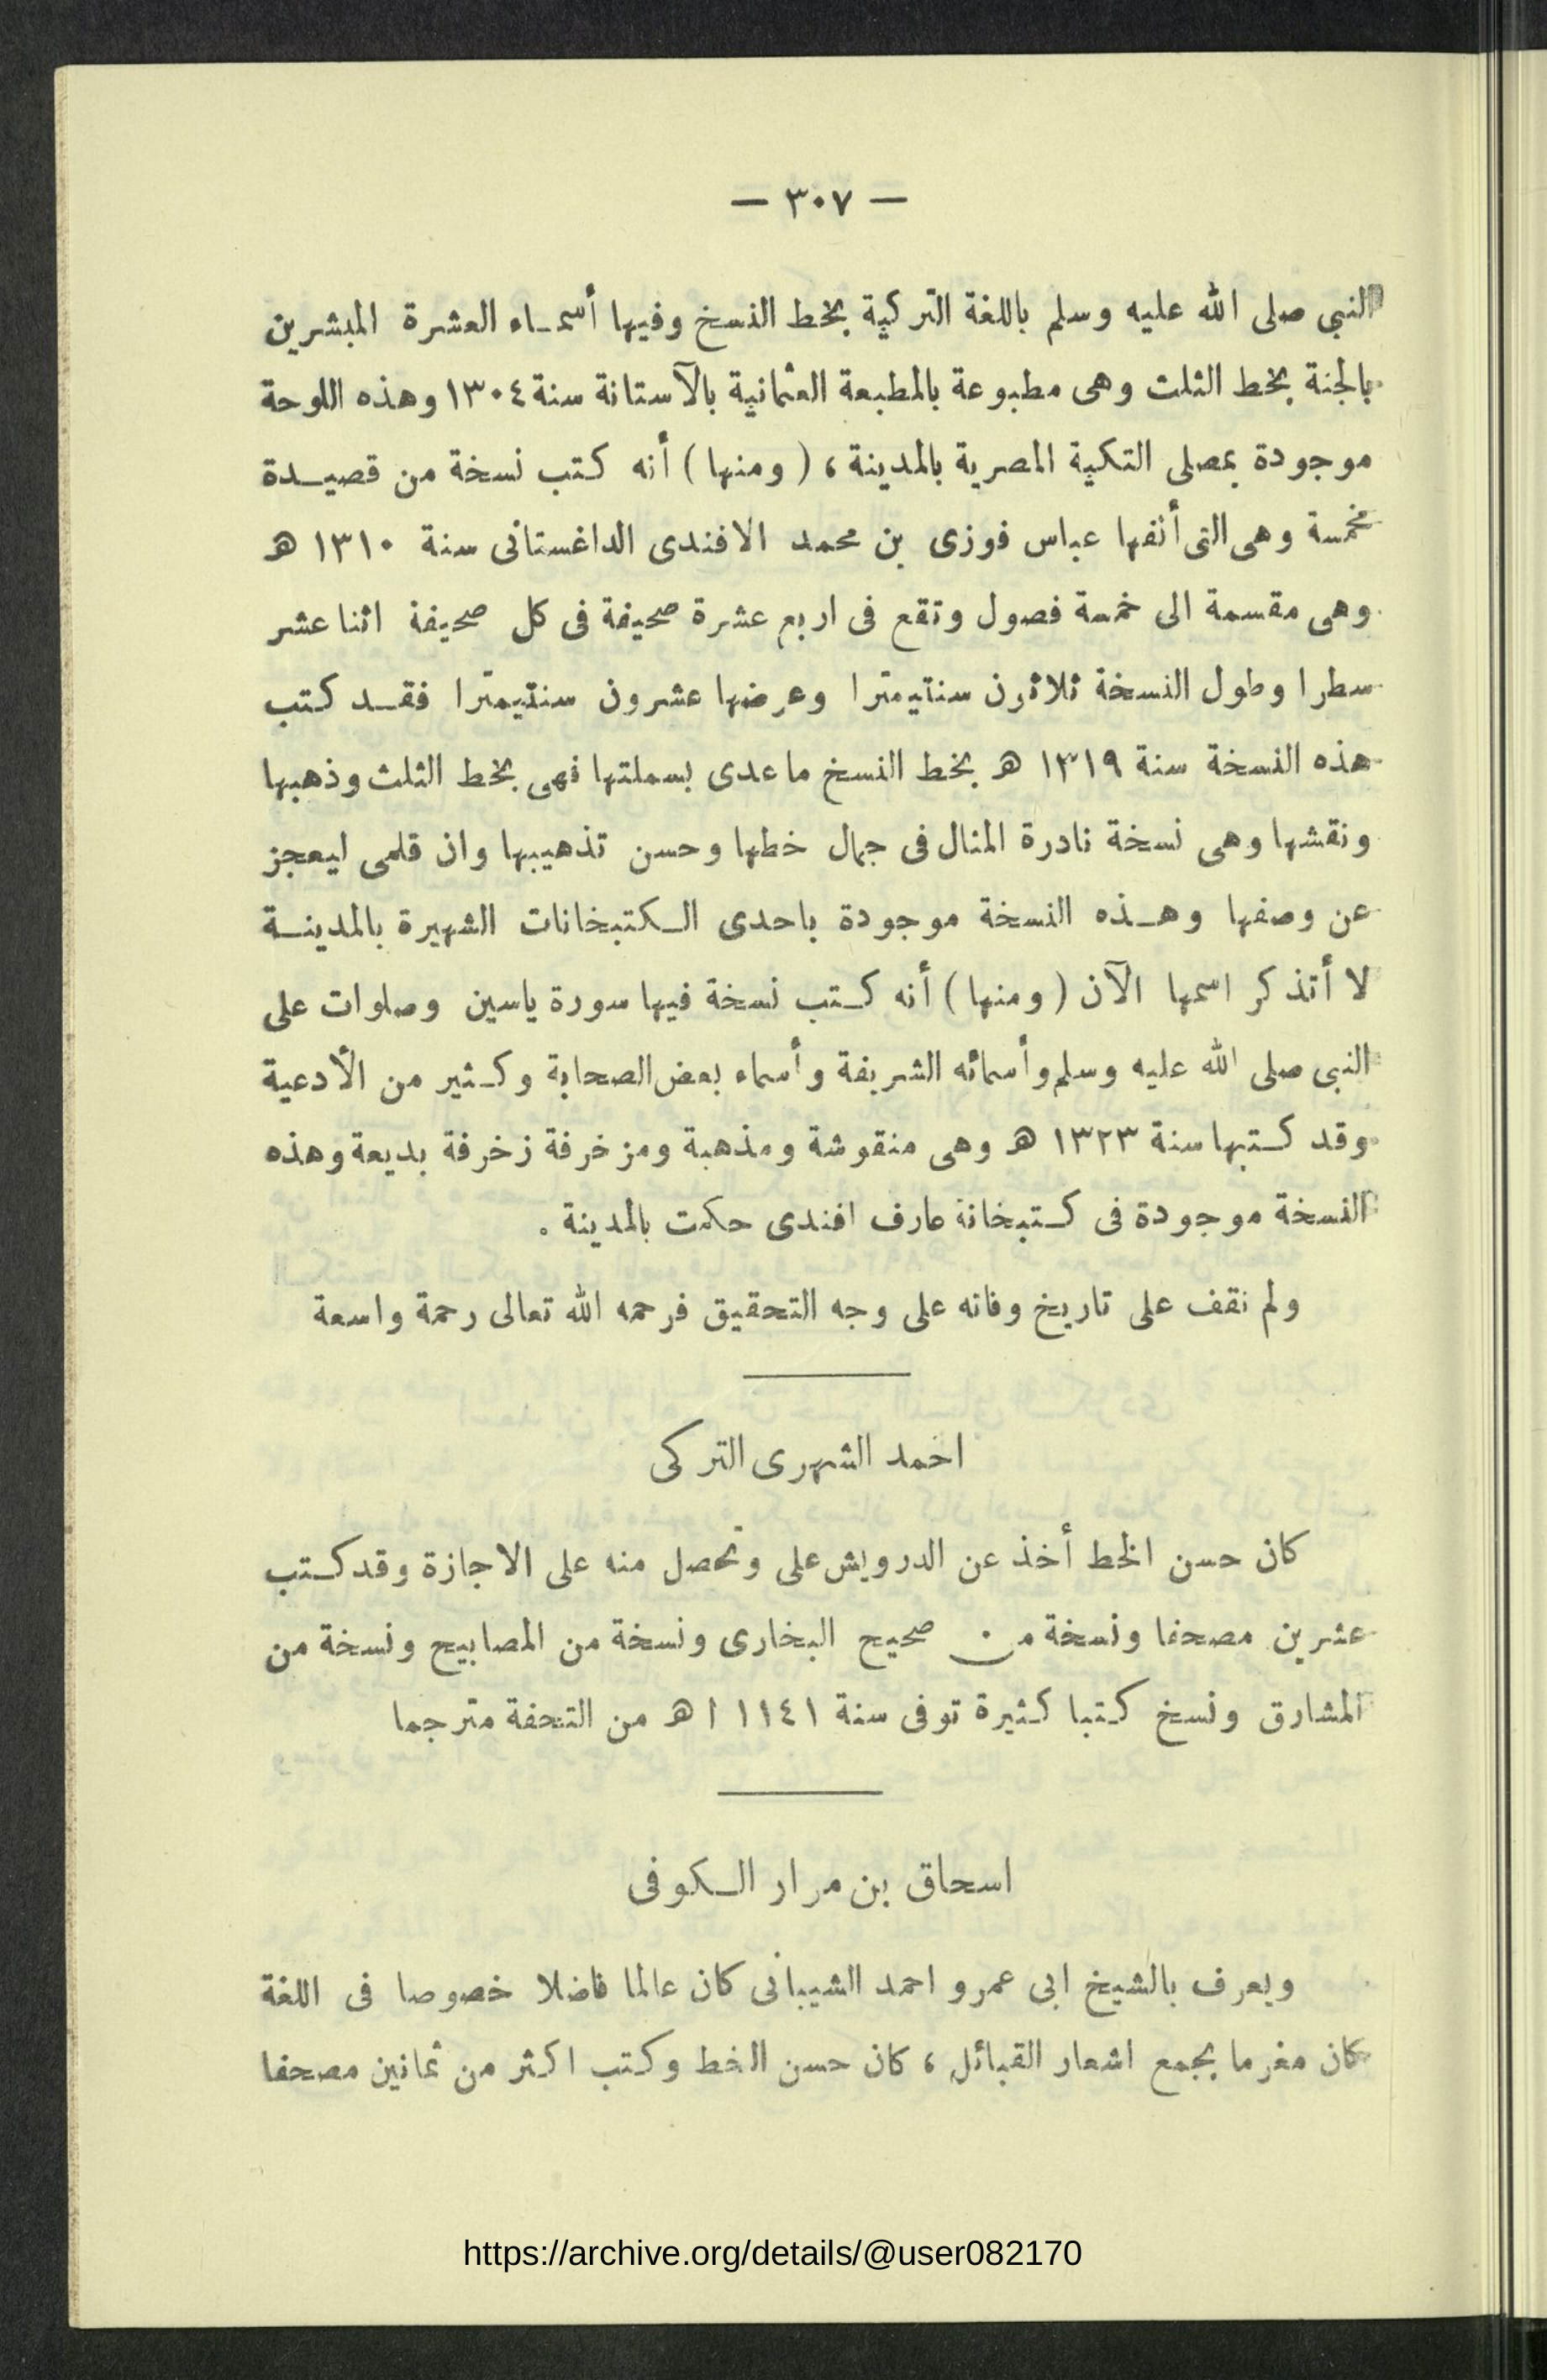 — ٣٠٧ —
النبي صلى الله عليه وسلم باللغة التركية بخط النسخ وفيها أسماء العشرة المبشرين
بالجنة بخط الثلث وهى مطبوعة بالمطبعة العثمانية بالآستانة سنة ١٣٠٤ وهذه اللوحة
موجودة بمصلى التكية المصرية بالمدينة ، ( ومنها ) أنه كتب نسخة من قصيدة
مخمسة وهى التى ألفها عباس فوزى بن محمد الافندى الداغستانى سنة ١٣١٠ هـ
وهى مقسمة الى خمسة فصول وتقع فى اربع عشرة صحيفة فى كل صحيفة اثنا عشر
سطرا وطول النسخة ثلاثون سنتيمترا وعرضها عشرون سنتيمترا فقد كتب
هذه النسخة سنة ١٣١٩ هـ بخط النسخ ما عدى بسملتها فهى بخط الثلث وذهبها
ونقشها وهى نسخة نادرة المنال فى جمال خطها وحسن تذهيبها وان قلمى ليعجز
عن وصفها وهذه النسخة موجودة باحدى الكتبخانات الشهيرة بالمدينة
لا أتذكر اسمها الآن ( ومنها ) أنه كتب نسخة فيها سورة ياسين وصلوات على
النبى صلى الله عليه وسلم وأسمائه الشريفة وأسماء بعض الصحابة وكثير من الأدعية
وقد كتبها سنة ١٣٢٣ هـ وهى منقوشة ومذهبة ومزخرفة زخرفة بديعة وهذه
النسخة موجودة فى كتبخانة عارف افندى حكمت بالمدينة .
ولم نقف على تاريخ وفاته على وجه التحقيق فرحمه الله تعالى رحمة واسعة
احمد الشهرى التركى
كان حسن الخط أخذ عن الدرويش على وتحصل منه على الاجازة وقد كتب
عشرين مصحفا ونسخة من صحيح البخارى ونسخة من المصابيح ونسخة من
المشارق ونسخ كتبا كثيرة توفى سنة ١١٤١ ا هـ من التحفة مترجما
اسحاق بن مرار الكوفى
ويعرف بالشيخ ابى عمرو احمد الشيبانى كان عالما فاضلا خصوصا فى اللغة
كان مغرما بجمع اشعار القبائل ، كان حسن الخط وكتب اكثر من ثمانين مصحفا
https://archive.org/details/@user082170